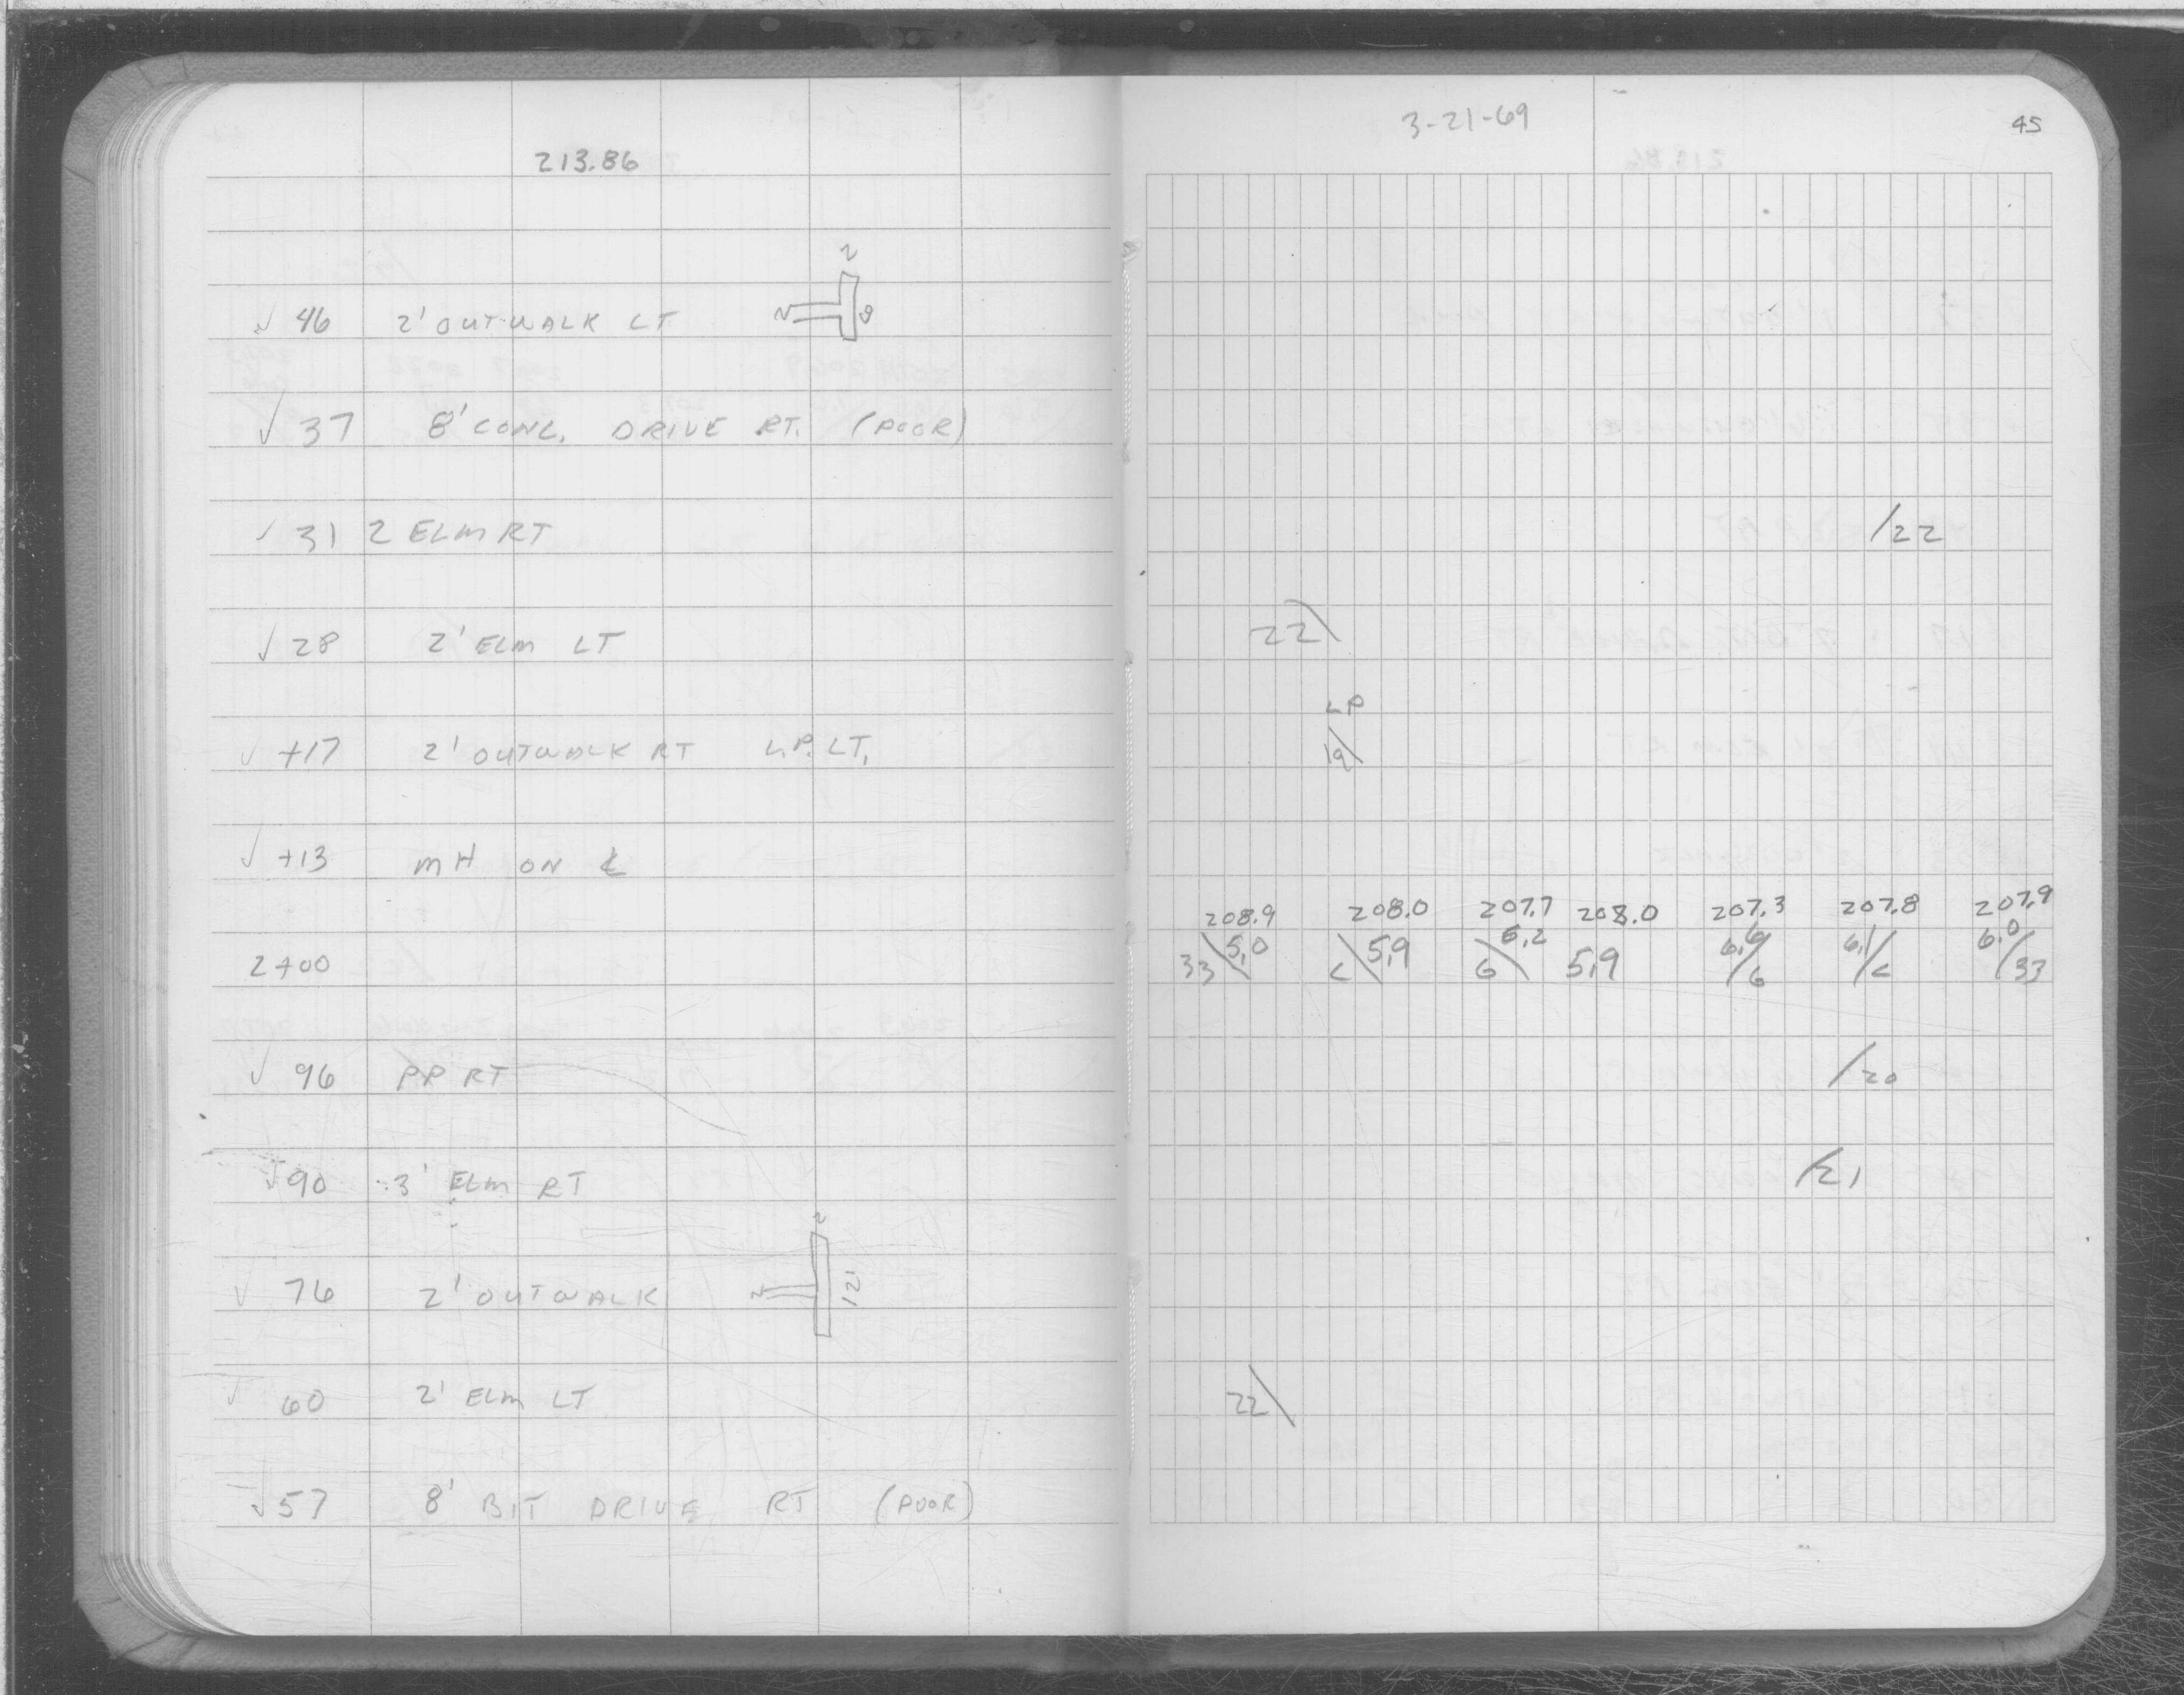 213.86
46 2' OUTWALK LT 2 2 9
37 8' CONC. DRIVE RT. (POOR)
31 2 ELM RT
28 2' ELM LT
+17 2' OUTWALK RT L.P. LT.
+13 MH ON ℄
2+00
96 PP RT
90 3' ELM RT
76 2' OUTWALK 2 2 12'
60 2' ELM LT
57 8' BIT DRIVE RT (POOR)
3-21-69
45
/22
22\
LP
19\
208.9 208.0 207.7 208.0 207.3 207.8 207.9
33\5.0 C\5.9 6\6.2 5.9 6.6/6 6.1/C 6.0/33
/20
/21
22\